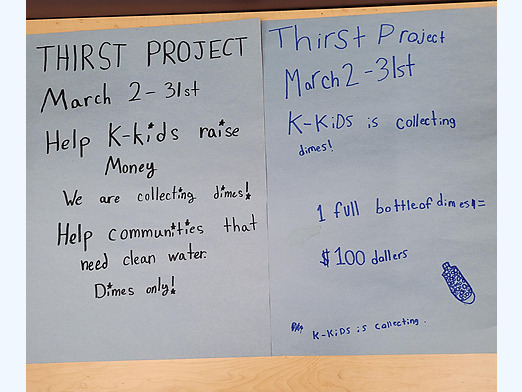 THIRST PROJECT
March 2-31st
Help K-kids raise
Money
We are collecting dimes!
Help communities that
need clean water.
Dimes only!
Thirst Project
March 2-31st
K-KiDS is collecting
dimes!
1 full bottle of dimes =
$100 dollers
K-KiDS is collecting.